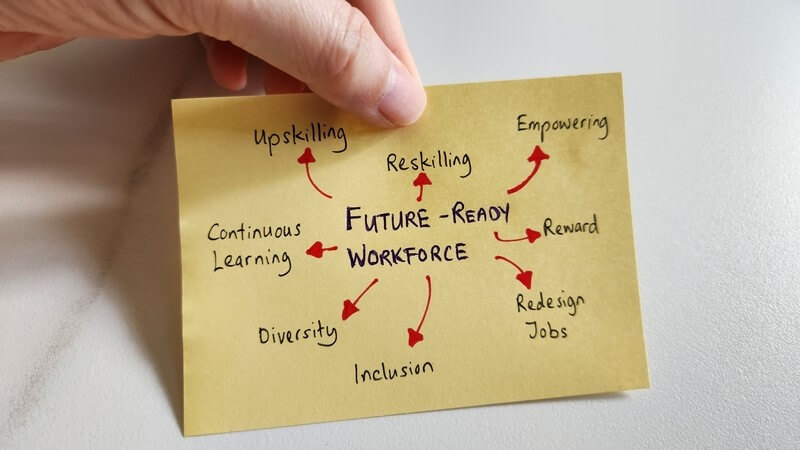 Upskilling
Reskilling
Empowering
FUTURE-READY
WORKFORCE
Continuous
Learning
Reward
Redesign
Jobs
Diversity
Inclusion